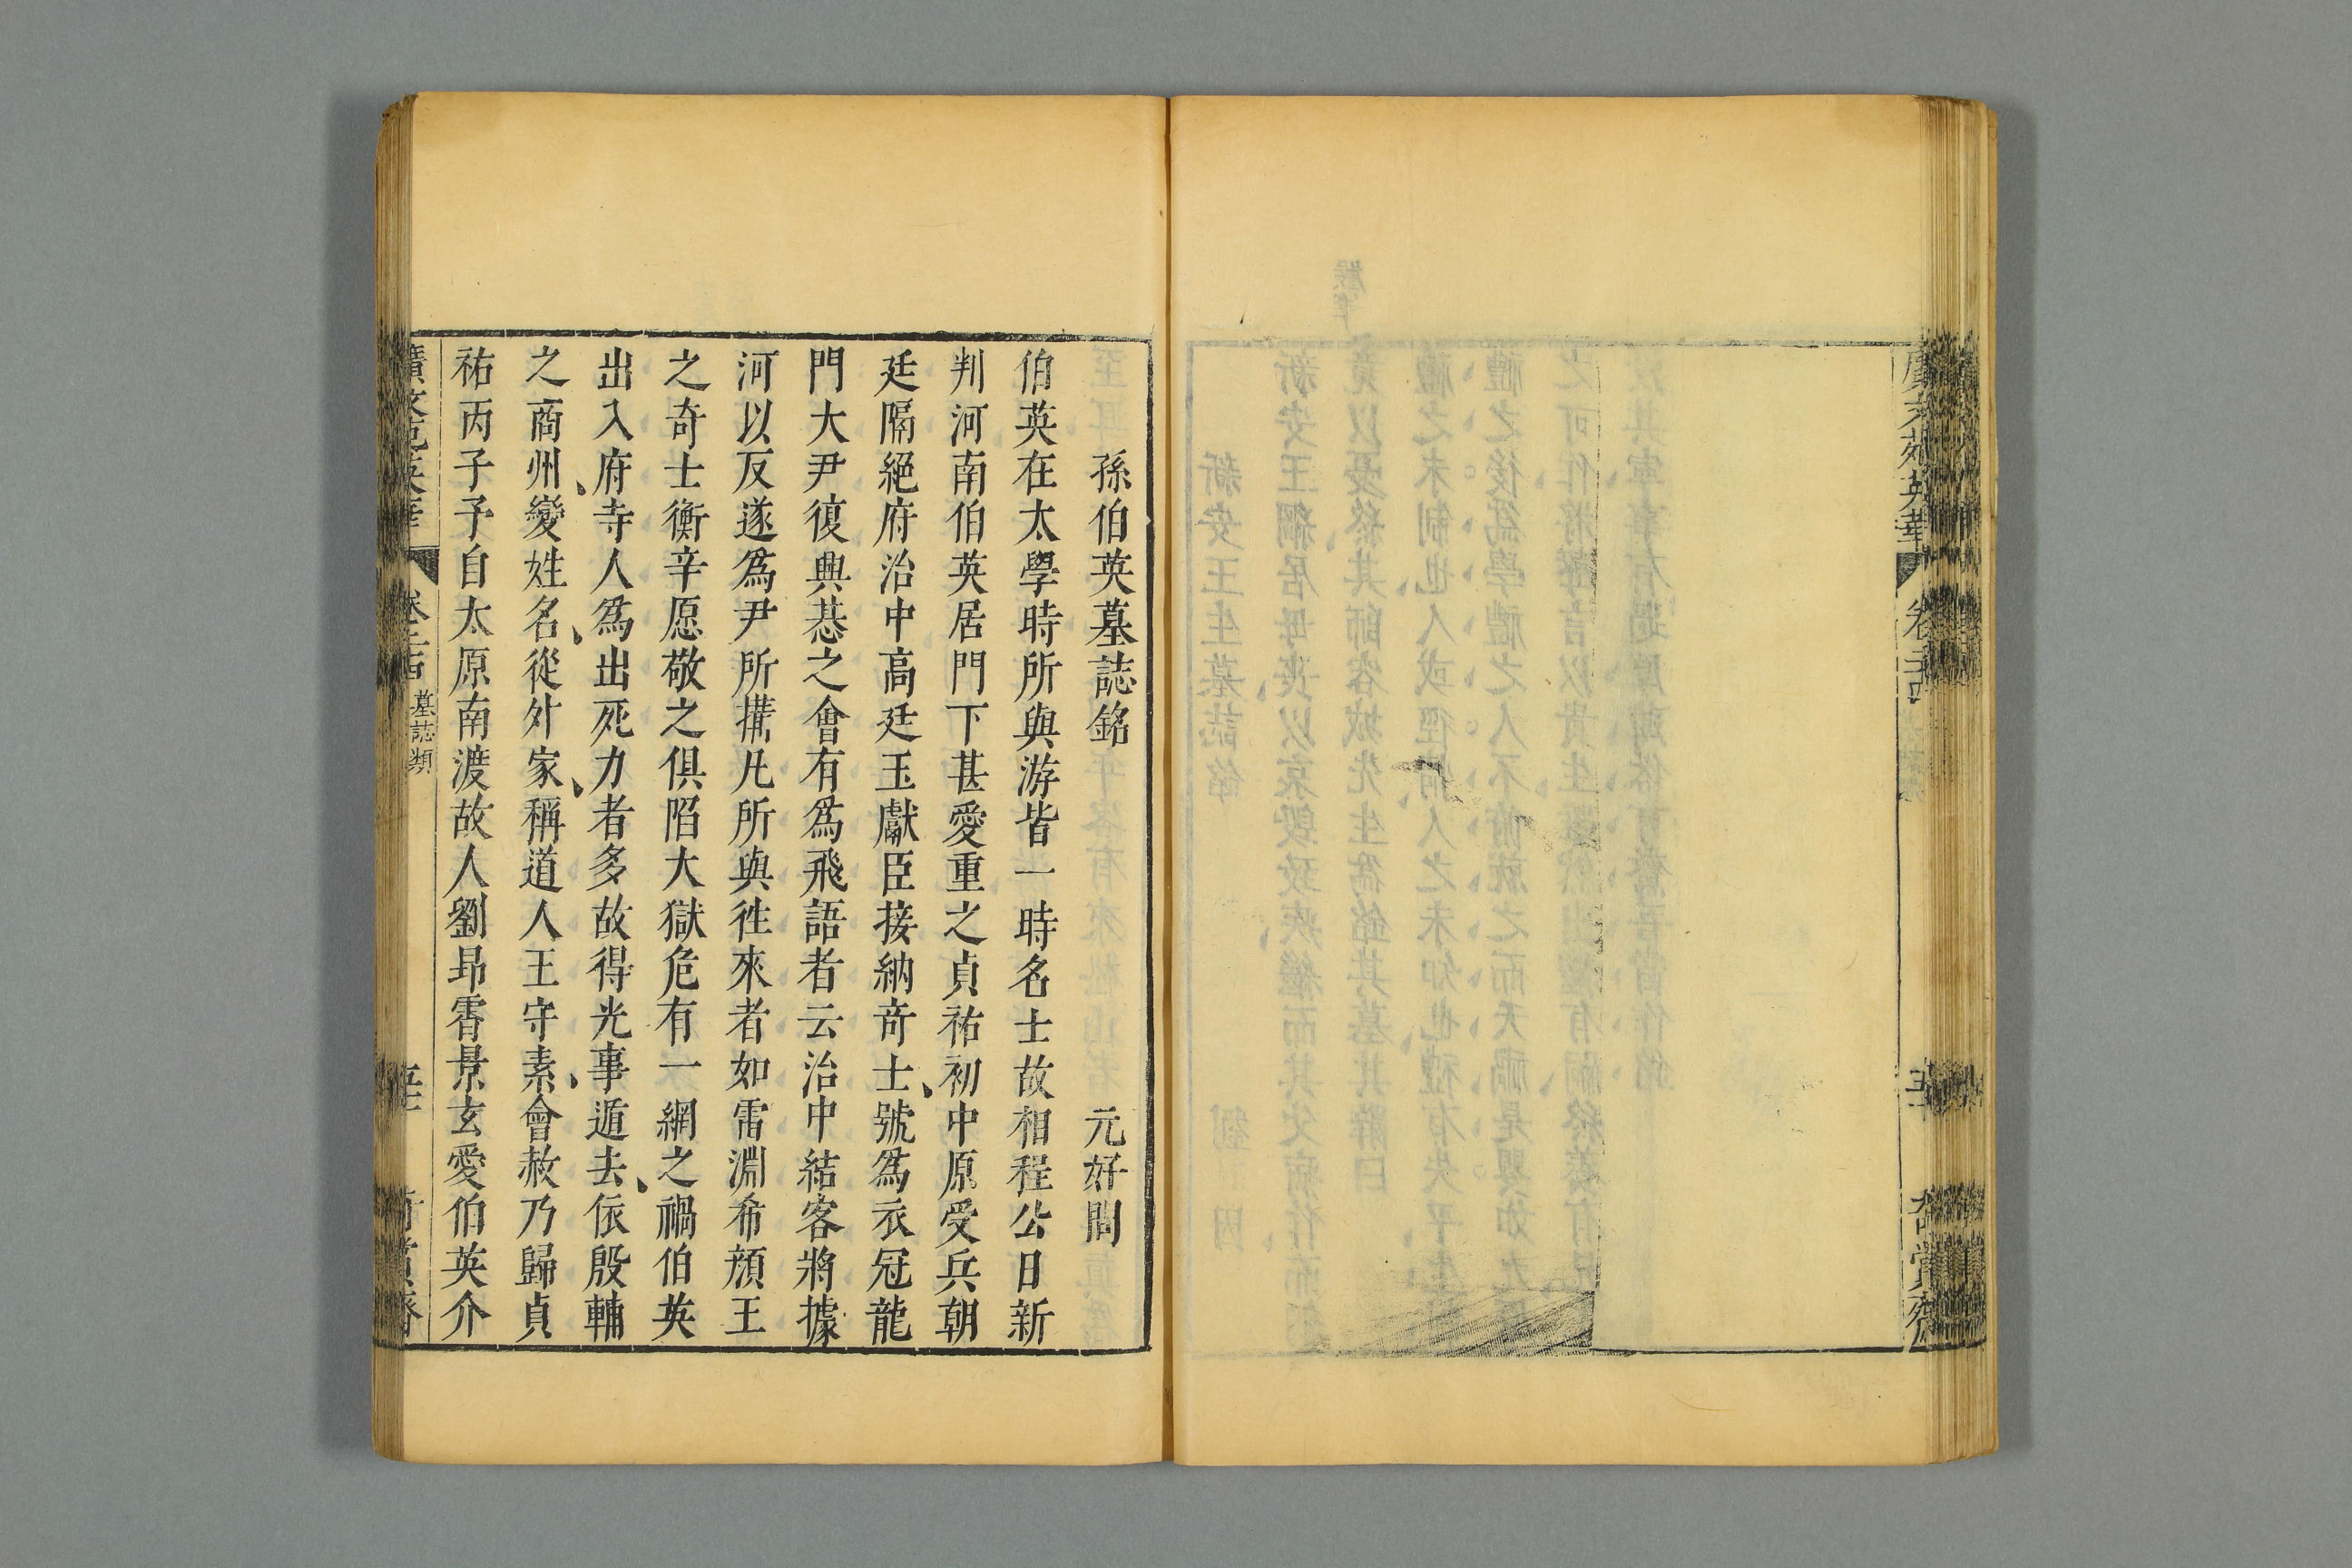 廣文苑英華
孫伯英墓誌銘 元好問
伯英在太學時所與游皆一時名士故相程公日新
判河南伯英居門下甚愛重之貞祐初中原受兵朝
廷隔絕府治中高廷玉獻臣接納奇士號爲衣冠龍
門大尹復興惎之會有爲飛語者云治中結客將據
河以反遂爲尹所搆凡所與徃來者如雷淵希顏王
之奇士衡辛愿敬之俱陷大獄危有一網之禍伯英
出入府寺人爲出死力者多故得先事遁去依殷輔
之商州變姓名從外家稱道人王守素會赦乃歸貞
祐丙子予自太原南渡故人劉昂霄景玄愛伯英介
廣文苑英華 墓誌類